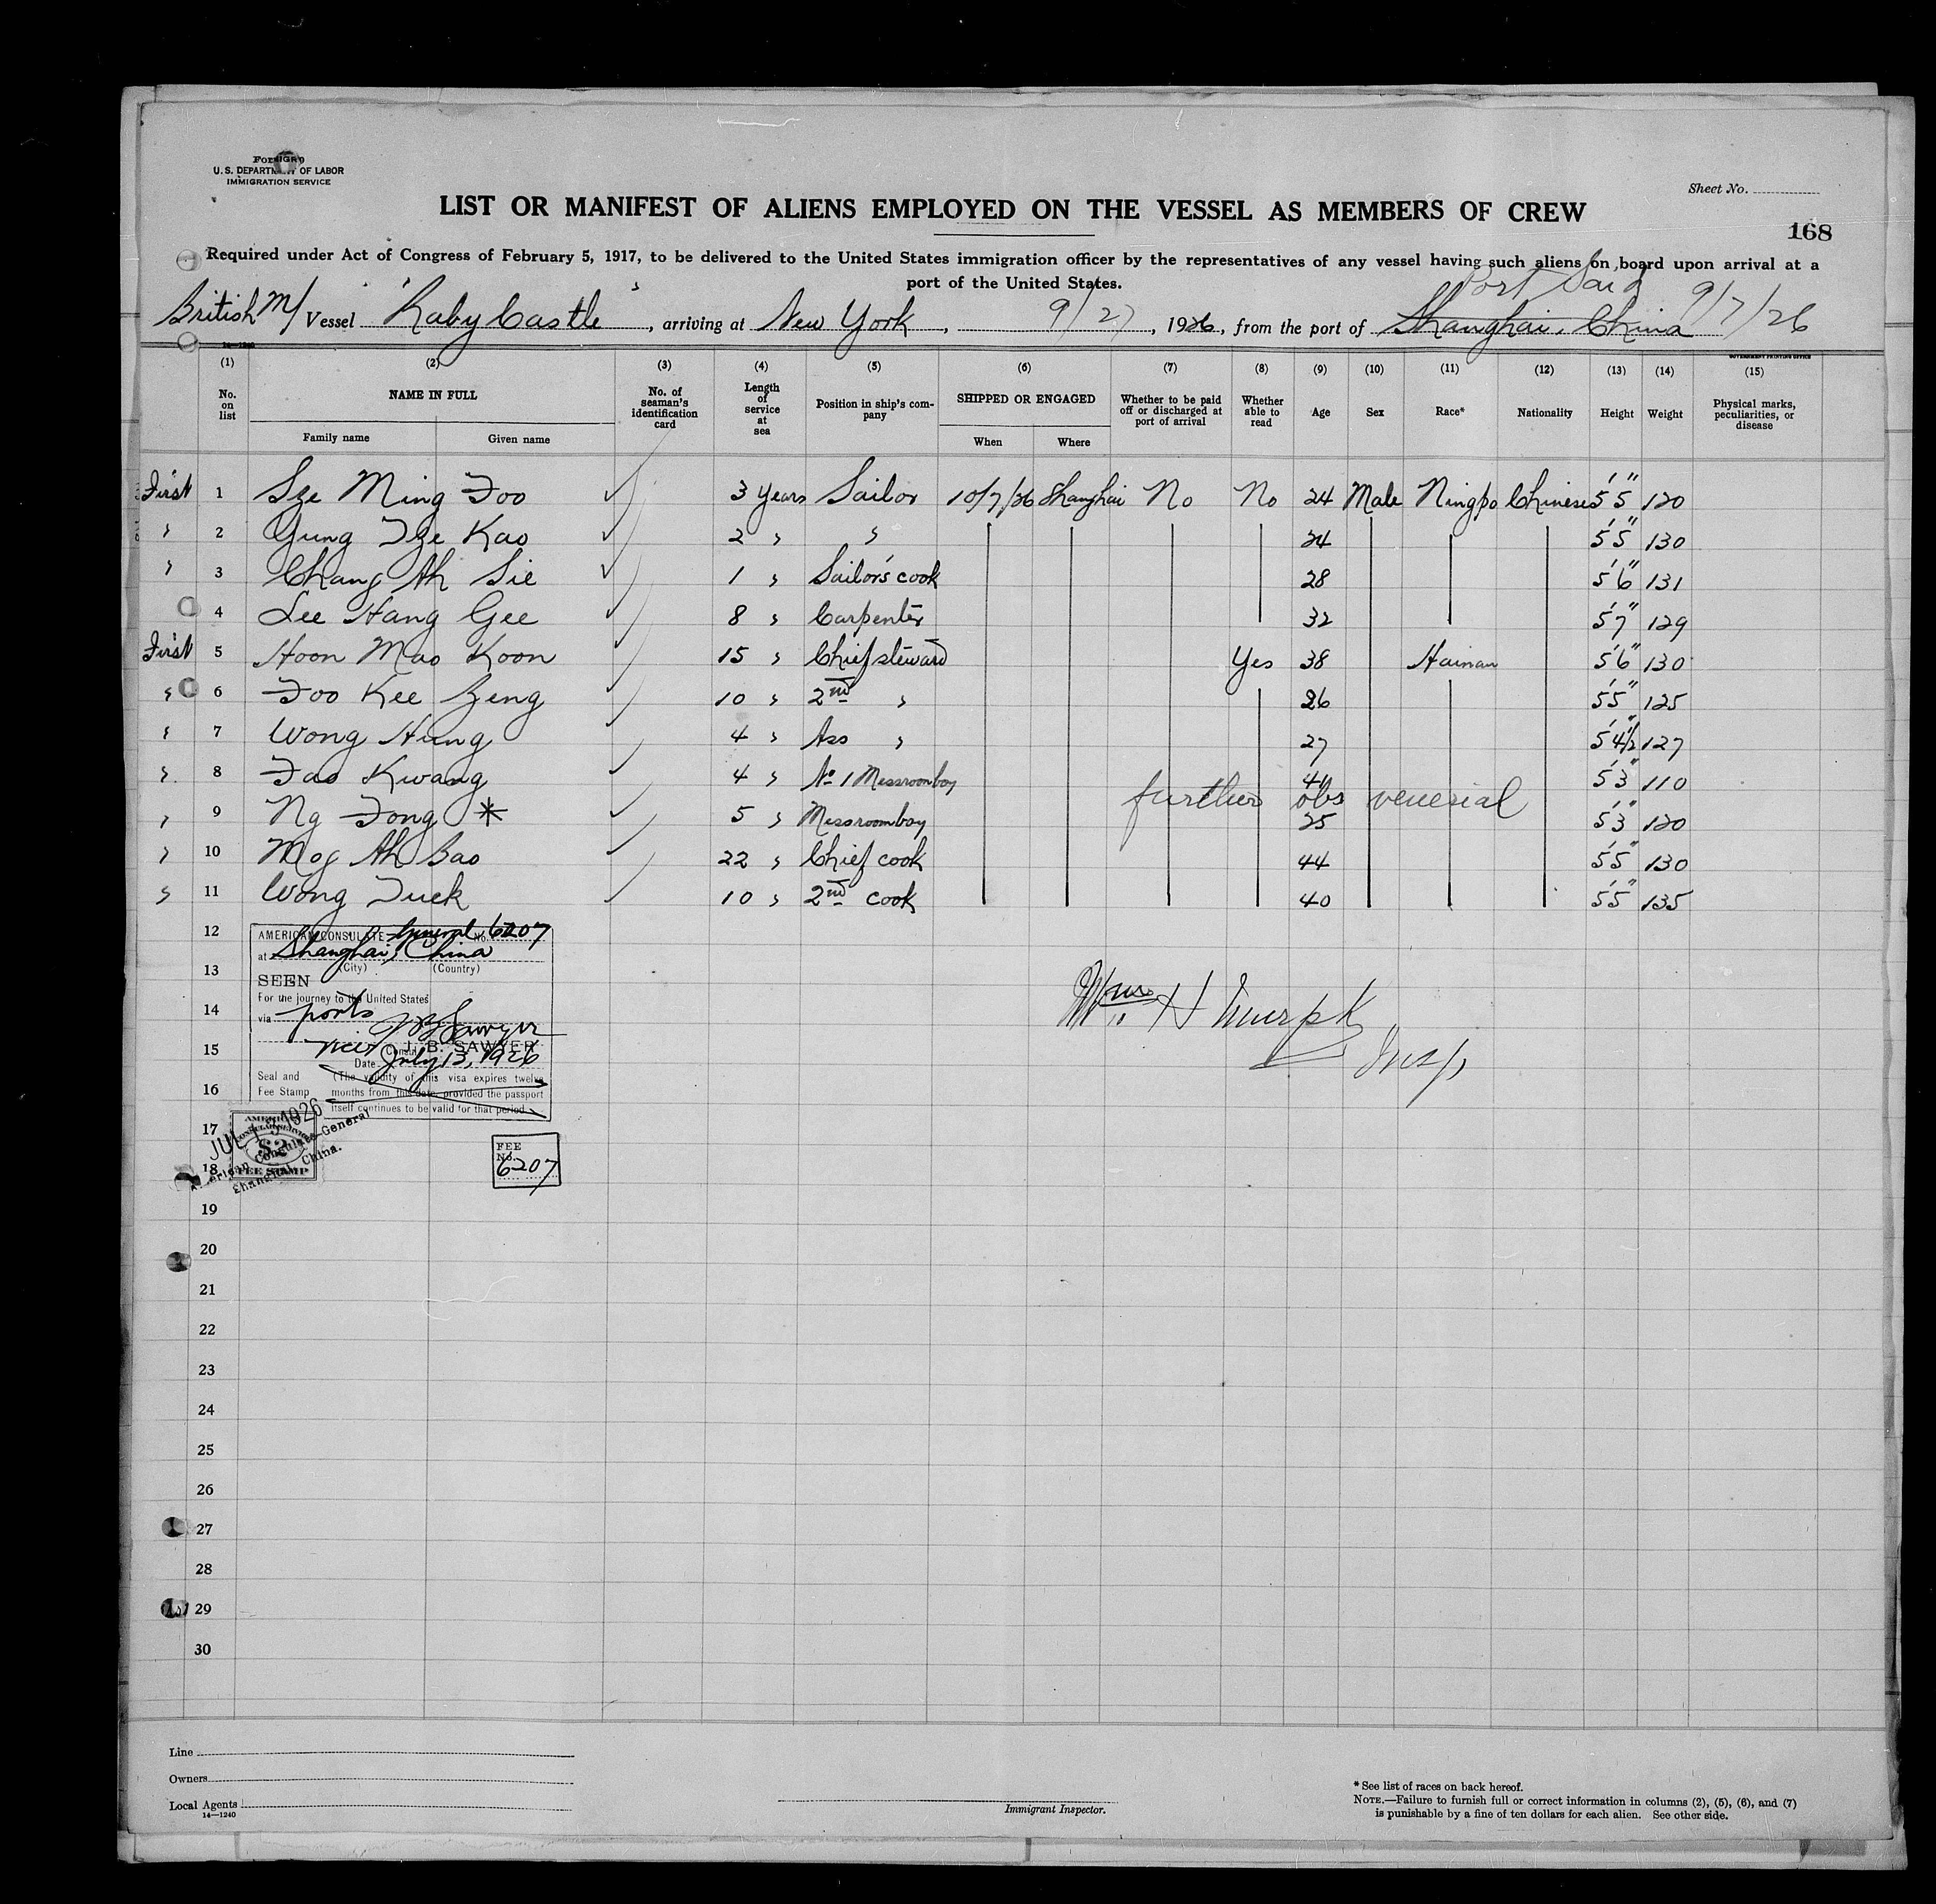 U. S. DEPARTMENT OF LABOR
IMMIGRATION SERVICE
Sheet No.
LIST OR MANIFEST OF ALIENS EMPLOYED ON THE VESSEL AS MEMBERS OF CREW
168
Required under Act of Congress of February 5, 1917, to be delivered to the United States immigration officer by the representatives of any vessel having such aliens on board upon arrival at a
port of the United States.
Port Said 9/7/26
British M/ Vessel "Raby Castle", arriving at New York, 9/27, 1926, from the port of Shanghai, China
14—1240
GOVERNMENT PRINTING OFFICE
(1) (2) (3) (4) (5) (6) (7) (8) (9) (10) (11) (12) (13) (14) (15)
No. on list NAME IN FULL No. of seaman's identification card Length of service at sea Position in ship's company SHIPPED OR ENGAGED Whether to be paid off or discharged at port of arrival Whether able to read Age Sex Race* Nationality Height Weight Physical marks, peculiarities, or disease
Family name Given name When Where
First 1 Sze Ming Foo ✓ 3 years Sailor 10/7/26 Shanghai No No 24 Male Ningpo Chinese 5'5" 120
" 2 Yung Tze Kao ✓ 2 " " 24 5'5" 130
" 3 Chang Ah Sie ✓ 1 " Sailor's cook 28 5'6" 131
4 Lee Hang Gee ✓ 8 " Carpenter 32 5'7" 129
First 5 Hoon Mao Koon ✓ 15 " Chief steward Yes 38 Hainan 5'6" 130
" 6 Foo Kee Zeng ✓ 10 " 2nd " 26 5'5" 125
" 7 Wong Hung ✓ 4 " Ass " 27 5'4½" 127
" 8 Fao Kwang ✓ 4 " No 1 Messroomboy 40 5'3" 110
further obs venerial
" 9 Ng Fong * ✓ 5 " Messroomboy 25 5'3" 120
" 10 Mog Ah Bao ✓ 22 " Chief cook 44 5'5" 130
" 11 Wong Tuck ✓ 10 " 2nd cook 40 5'5" 135
12
AMERICAN CONSULATE General No. 6207
at Shanghai, China
(City) (Country)
13
SEEN
For the journey to the United States
14
via ports
J B Sawyer
Wm H
15
Vice Consul J. B. SAWYER
Date July 13, 1926
Insp
Seal and Fee Stamp
(The validity of this visa expires twelve
16
months from this date, provided the passport
itself continues to be valid for that period.
17
JUL 13 1926
AMERICAN
CONSULAR SERVICE
$2
FEE STAMP
American Consulate General
Shanghai, China.
FEE
No.
6207
18
19
20
21
22
23
24
25
26
27
28
29
30
Line
Owners
Local Agents
14—1240
Immigrant Inspector.
* See list of races on back hereof.
NOTE.—Failure to furnish full or correct information in columns (2), (5), (6), and (7)
is punishable by a fine of ten dollars for each alien. See other side.